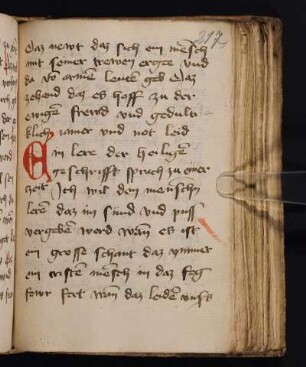 217
Das newt das sich ein mēsch
mit seiner trewen erge vnd
da vō armē leutē geb Das
zehend das es hoff zu der
ewigē frewd vnd gedulti-
klich armer vnd not leid
Ein lere der heiligē
geschrifft sprach zu einer
zeit Ich wil den menschn
leren das im sund vnd puss
vergebē werd wan es ist
ein grosse schant das ymmer
ein cristē mēsch in das feg
fewr fert wan das leidē vnss